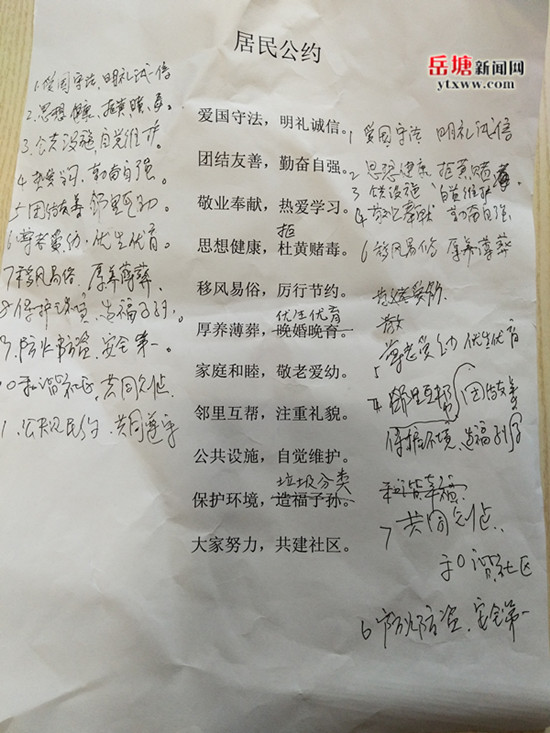 居民公约
岳塘新闻网
ytxww.com
爱国守法，明礼诚信。
团结友善，勤奋自强。
敬业奉献，热爱学习。
拒
思想健康，杜黄赌毒。
移风易俗，厉行节约。
优生优育
厚养薄葬，晚婚晚育。
家庭和睦，敬老爱幼。
邻里互帮，注重礼貌。
公共设施，自觉维护。
垃圾分类
保护环境，造福子孙。
大家努力，共建社区。
1. 爱国守法，明礼诚信
2. 思想健康，拒黄赌毒。
3. 公共设施，自觉维护。
4. 热爱学习，勤奋自强。
5 团结友善 邻里互助。
6 尊老爱幼，优生优育。
7 移风易俗，厚养薄葬。
8 保护环境，造福子孙。
9. 防火防盗，安全第一。
10 和谐社区，共同创造
公共设施 自觉维护
1 爱国守法 明礼诚信
2 思想健康 拒黄赌毒
3 公共设施 自觉维护
4 敬业奉献 勤奋自强
6 移风易俗 厚养薄葬
5 尊老爱幼 优生优育
邻里互帮 团结友善
保护环境，造福子孙
7 共同创造
和谐社区
6 防火防盗，安全第一